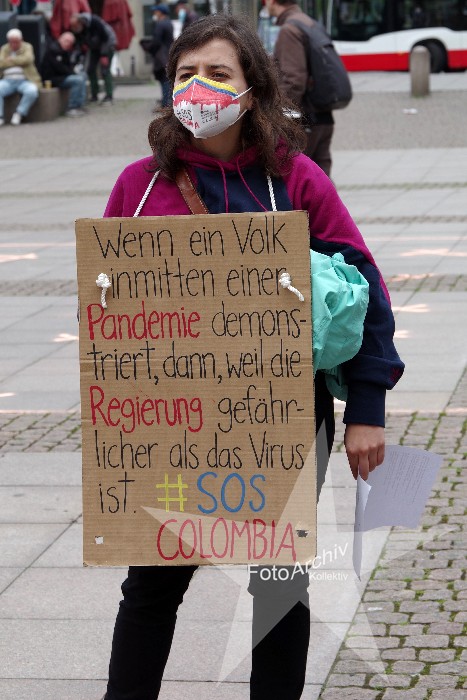 Wenn ein Volk
inmitten einer
Pandemie demons-
triert, dann, weil die
Regierung gefähr-
licher als das Virus
ist. #SOS
COLOMBIA
FotoArchiv
Kollektiv